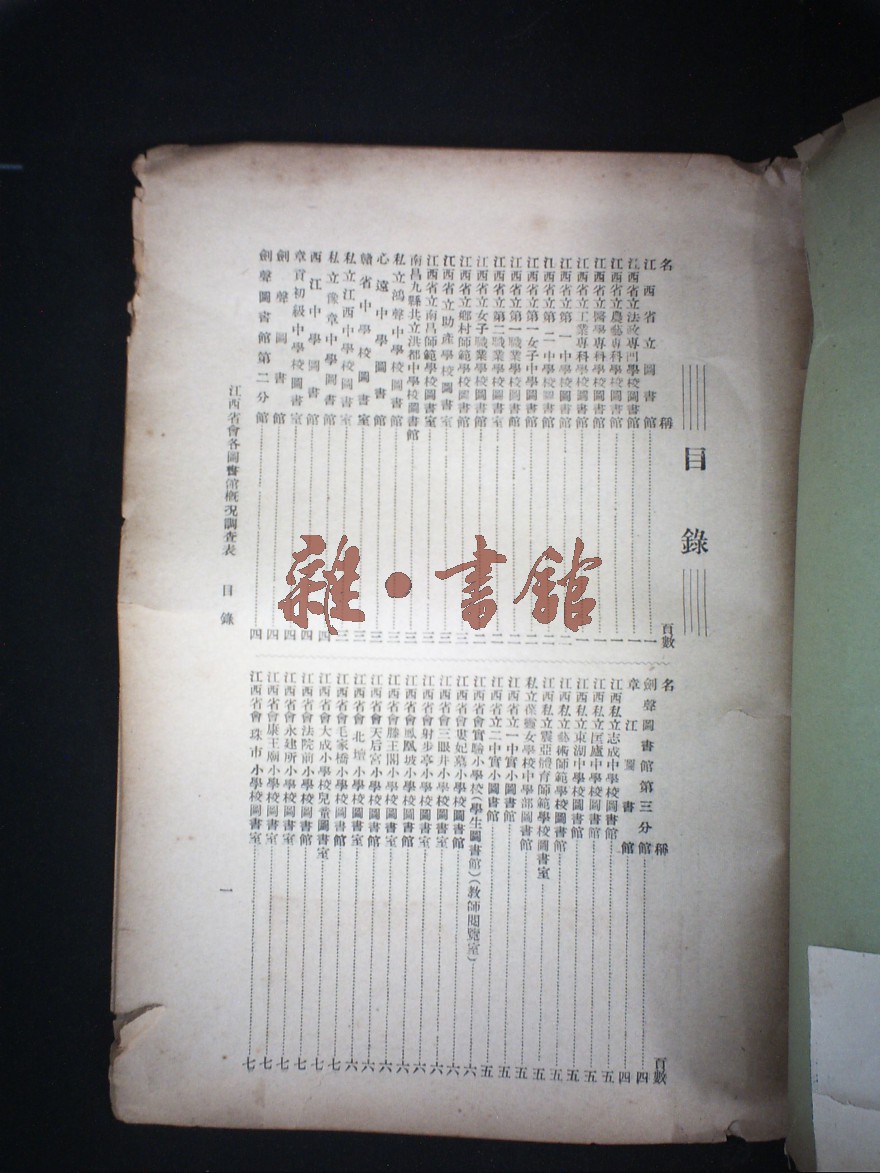 目錄
名稱 頁數
江西省立圖書館 一
江西省立法政專門學校圖書館 一
江西省立農藝專科學校圖書館 一
江西省立醫學專科學校圖書館 一
江西省立工業專科學校圖書館 一
江西省立第一中學校圖書館 二
江西省立第二中學校圖書館 二
江西省立第一女子中學圖書館 二
江西省立第一職業學校圖書館 二
江西省立第二職業學校圖書室 二
江西省立女子職業學校圖書館 二
江西省立鄉村師範學校圖書館 三
江西省立助產學校圖書室 三
江西省立南昌師範學校圖書室 三
南昌九縣共立洪都中學校圖書館 三
私立鴻聲中學校圖書館 三
心遠中學圖書館 三
贛省中學校圖書室 三
私立江西中學校圖書室 三
私立豫章中學圖書館 四
西江中學圖書館 四
章貢初級中學校圖書室 四
劍聲圖書館 四
劍聲圖書館第二分館 四
名稱 頁數
劍聲圖書館第三分館 四
章江圖書館 四
江西私立志成中學校圖書館 五
江西私立匡廬中學校圖書館 五
江西私立東湖中學校圖書館 五
江西私立藝術師範學校圖書館 五
江西私立震亞體育師範學校圖書室 五
私立葆靈女學校中學部圖書館 五
江西省立一中實小圖書館 五
江西省立二中實小圖書館 五
江西省會實驗小學校(學生圖書館)(教師閱覽室) 六
江西省會婁妃墓小學校圖書館 六
江西省會三眼井小學校圖書室 六
江西省會射步亭小學校圖書室 六
江西省會鳳凰坡小學校圖書館 六
江西省會滕王閣小學校圖書館 六
江西省會天后宮小學校圖書館 六
江西省會北壇小學校圖書室 六
江西省會毛家橋小學校圖書館 七
江西省會大成小學校兒童圖書室 七
江西省會法院前小學校圖書館 七
江西省會永建所小學校圖書室 七
江西省會康王廟小學校圖書室 七
江西省會珠市小學校圖書室 七
江西省會各圖書館概況調查表 目錄 一
雜·書館